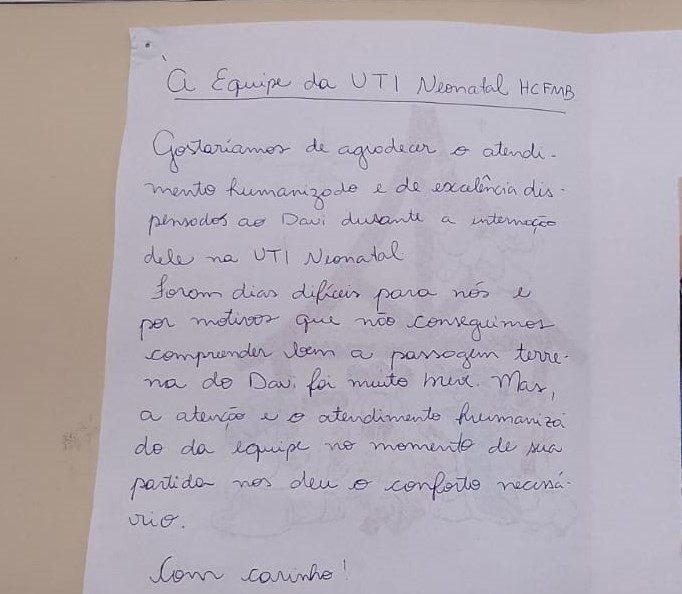 À Equipe da UTI Neonatal HCFMB
Gostaríamos de agradecer o atendi-
mento humanizado e de excelência dis-
pensados ao Davi durante a internação
dele na UTI Neonatal
Foram dias difíceis para nós e
por motivos que não conseguimos
compreender bem a passagem terre-
na do Davi foi muito breve. Mas,
a atenção e o atendimento humaniza
do da equipe no momento de sua
partida nos deu o conforto necessá-
rio.
Com carinho!